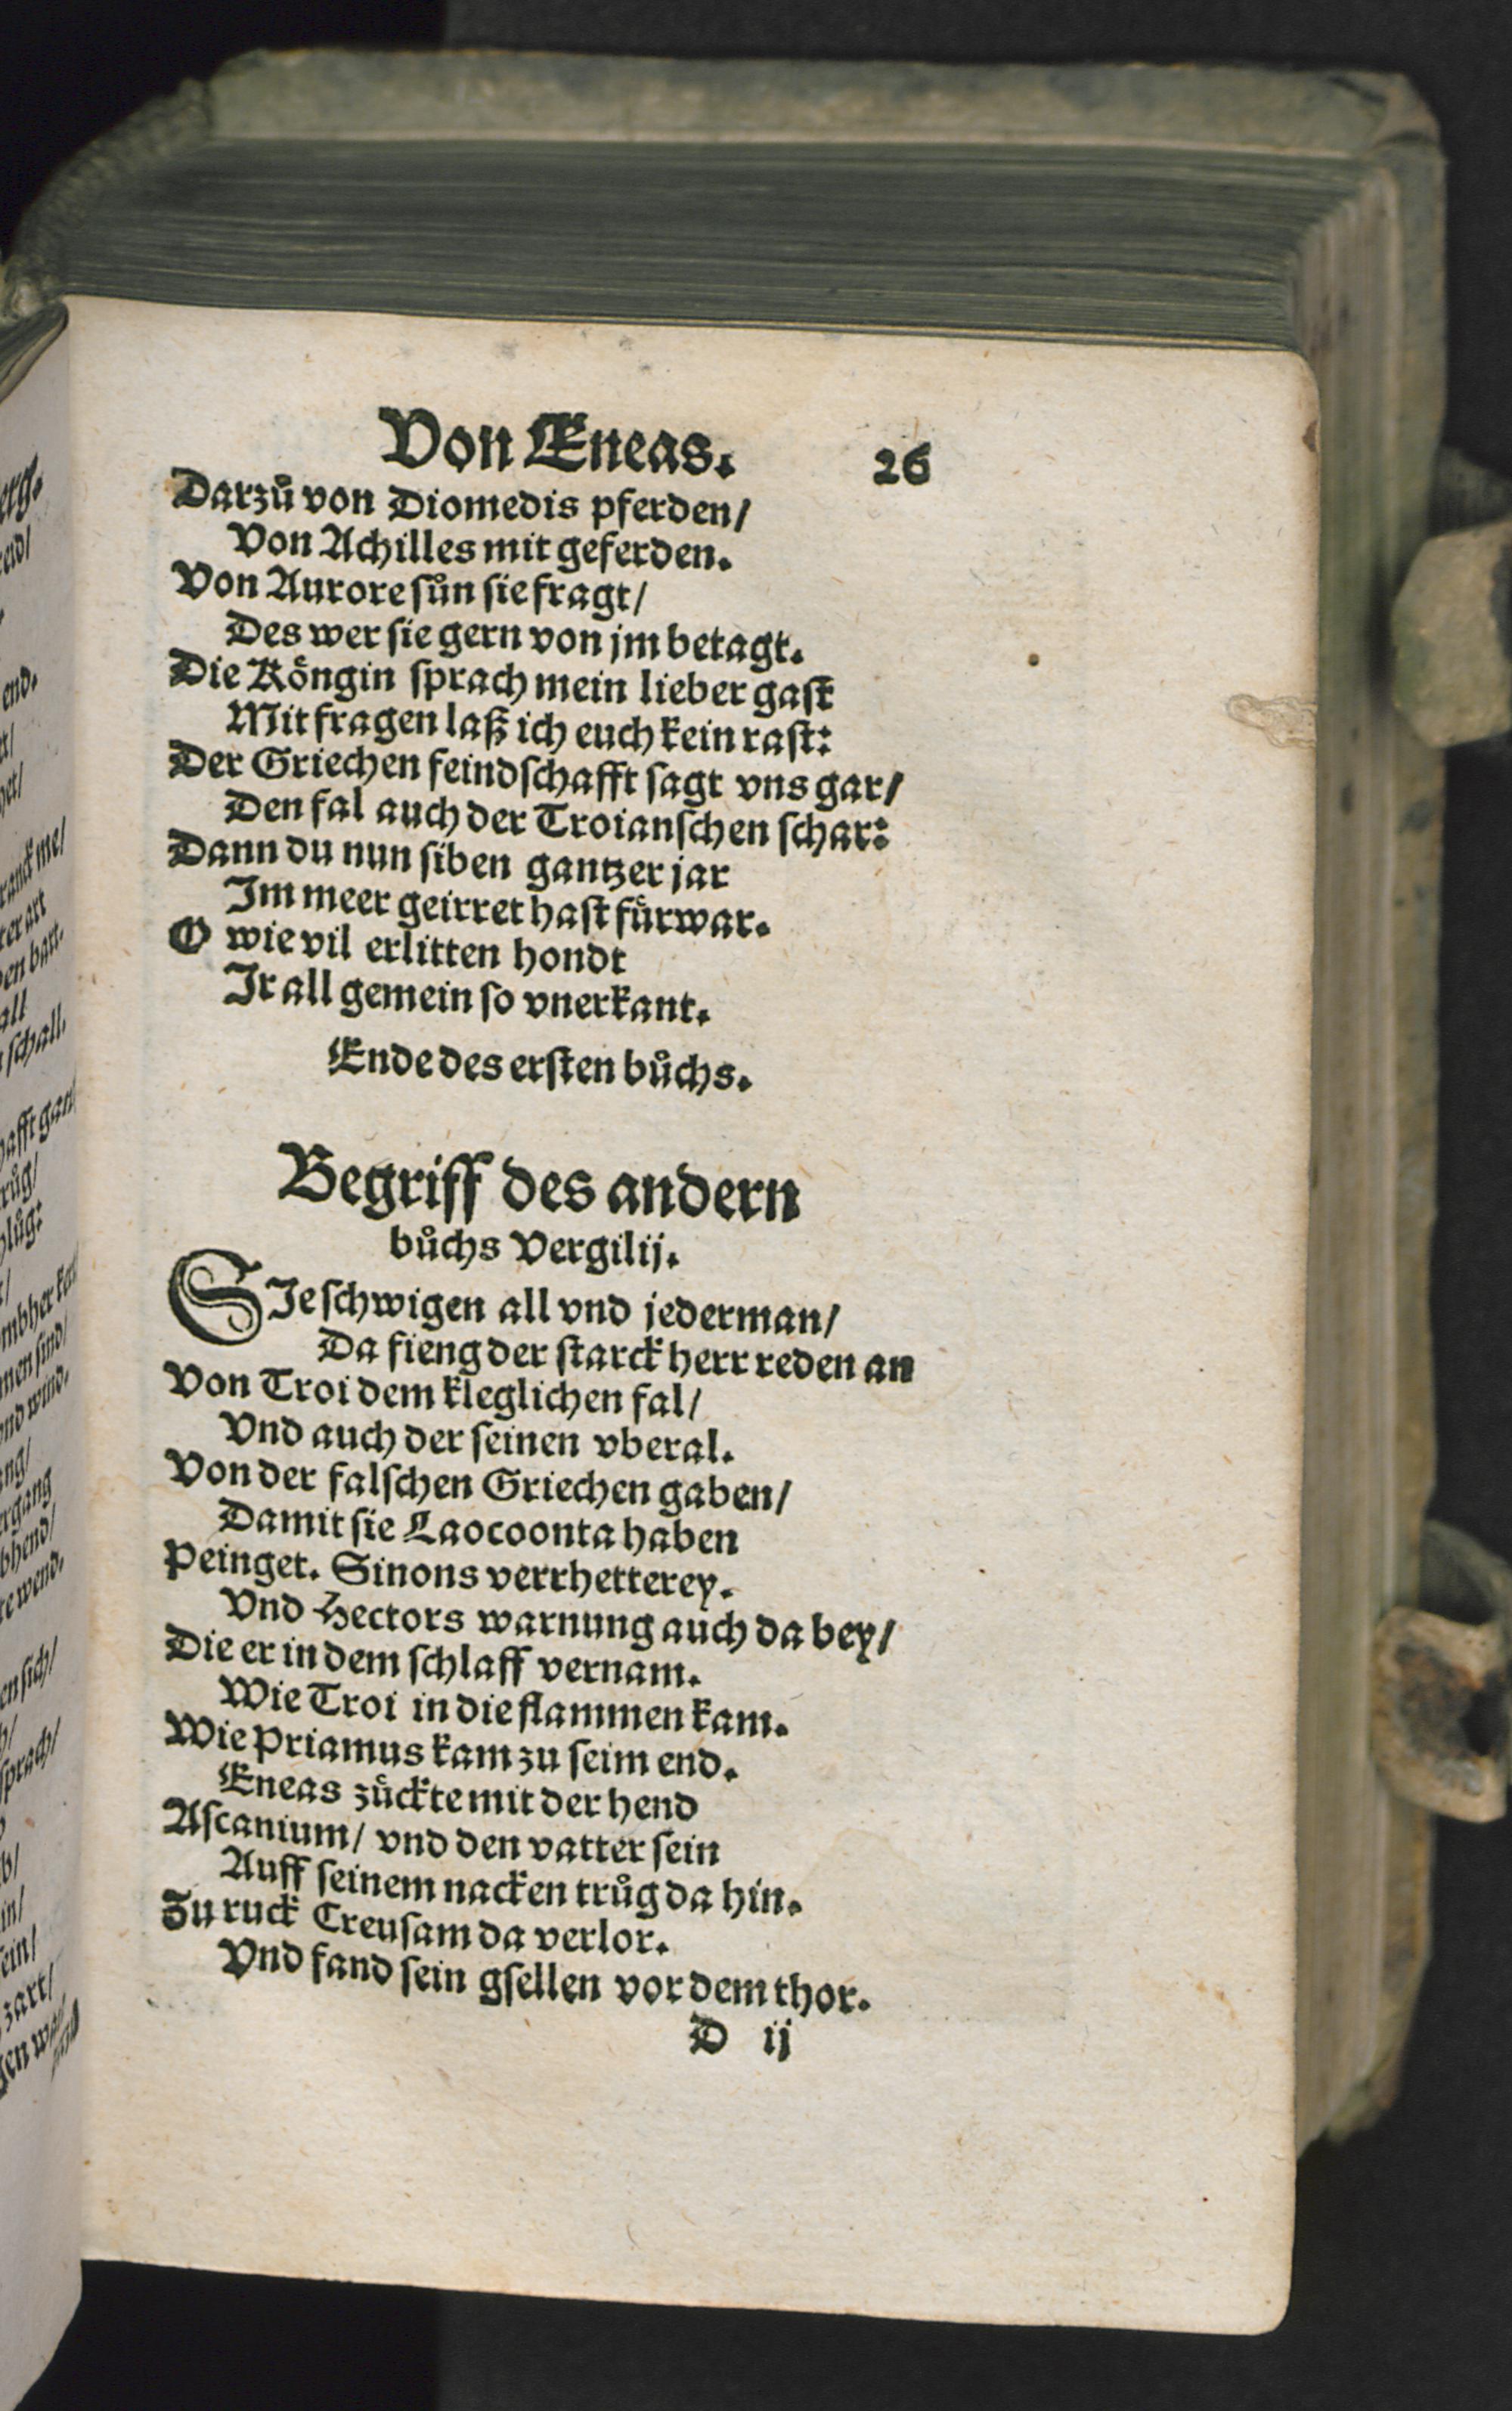 Von Eneas. 26
Darzuͦ von Diomedis pferden/
Von Achilles mit geferden.
Von Aurore suͤn sie fragt/
Des wer sie gern von jm betagt.
Die Koͤngin sprach mein lieber gast
Mit fragen laß ich euch kein rast:
Der Griechen feindschafft sagt vns gar/
Den fal auch der Troianschen schar:
Dann du nun siben gantzer jar
Im meer geirret hast fuͤrwar.
O wie vil erlitten hondt
Ir all gemein so vnerkant.
Ende des ersten buͦchs.
Begriff des andern
buͦchs Vergilij.
SIe schwigen all vnd jederman/
Da fieng der starck herr reden an
Von Troi dem kleglichen fal/
Vnd auch der seinen vberal.
Von der falschen Griechen gaben/
Damit sie Laocoonta haben
Peinget. Sinons verrhetterey.
Vnd Hectors warnung auch da bey/
Die er in dem schlaff vernam.
Wie Troi in die flammen kam.
Wie Priamus kam zu seim end.
Eneas zuͤckte mit der hend
Ascanium/ vnd den vatter sein
Auff seinem nacken truͦg da hin.
Zu ruck Creusam da verlor.
Vnd fand sein gsellen vor dem thor.
D ij